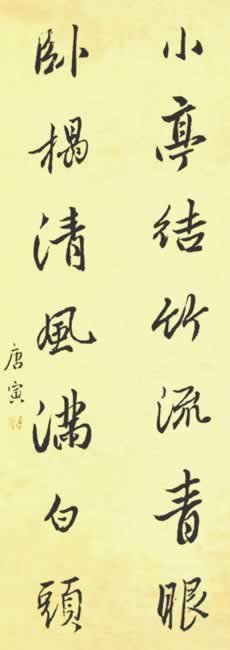 小亭結竹流青眼
卧榻清風滿白頭
唐寅